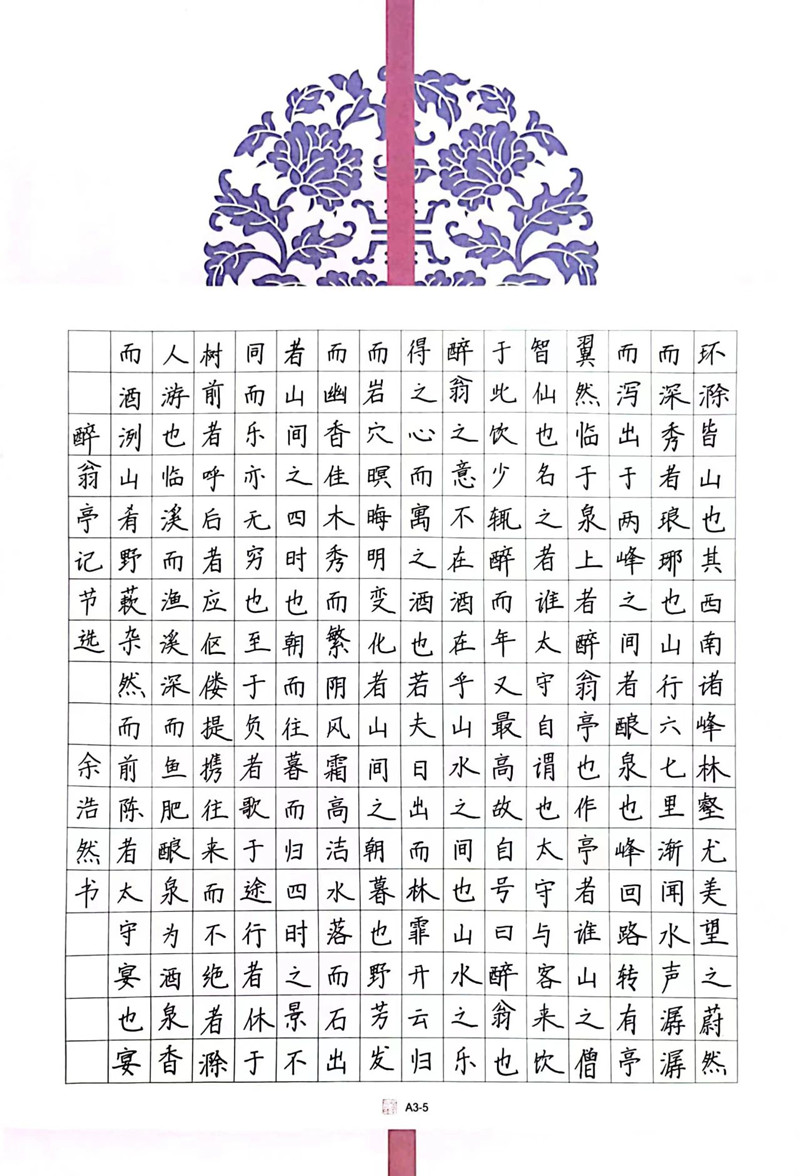 环滁皆山也其西南诸峰林壑尤美望之蔚然
而深秀者琅琊也山行六七里渐闻水声潺潺
而泻出于两峰之间者酿泉也峰回路转有亭
翼然临于泉上者醉翁亭也作亭者谁山之僧
智仙也名之者谁太守自谓也太守与客来饮
于此饮少辄醉而年又最高故自号曰醉翁也
醉翁之意不在酒在乎山水之间也山水之乐
得之心而寓之酒也若夫日出而林霏开云归
而岩穴暝晦明变化者山间之朝暮也野芳发
而幽香佳木秀而繁阴风霜高洁水落而石出
者山间之四时也朝而往暮而归四时之景不
同而乐亦无穷也至于负者歌于途行者休于
树前者呼后者应伛偻提携往来而不绝者滁
人游也临溪而渔溪深而鱼肥酿泉为酒泉香
而酒洌山肴野蔌杂然而前陈者太守宴也宴
醉翁亭记节选 余浩然书
A3-5